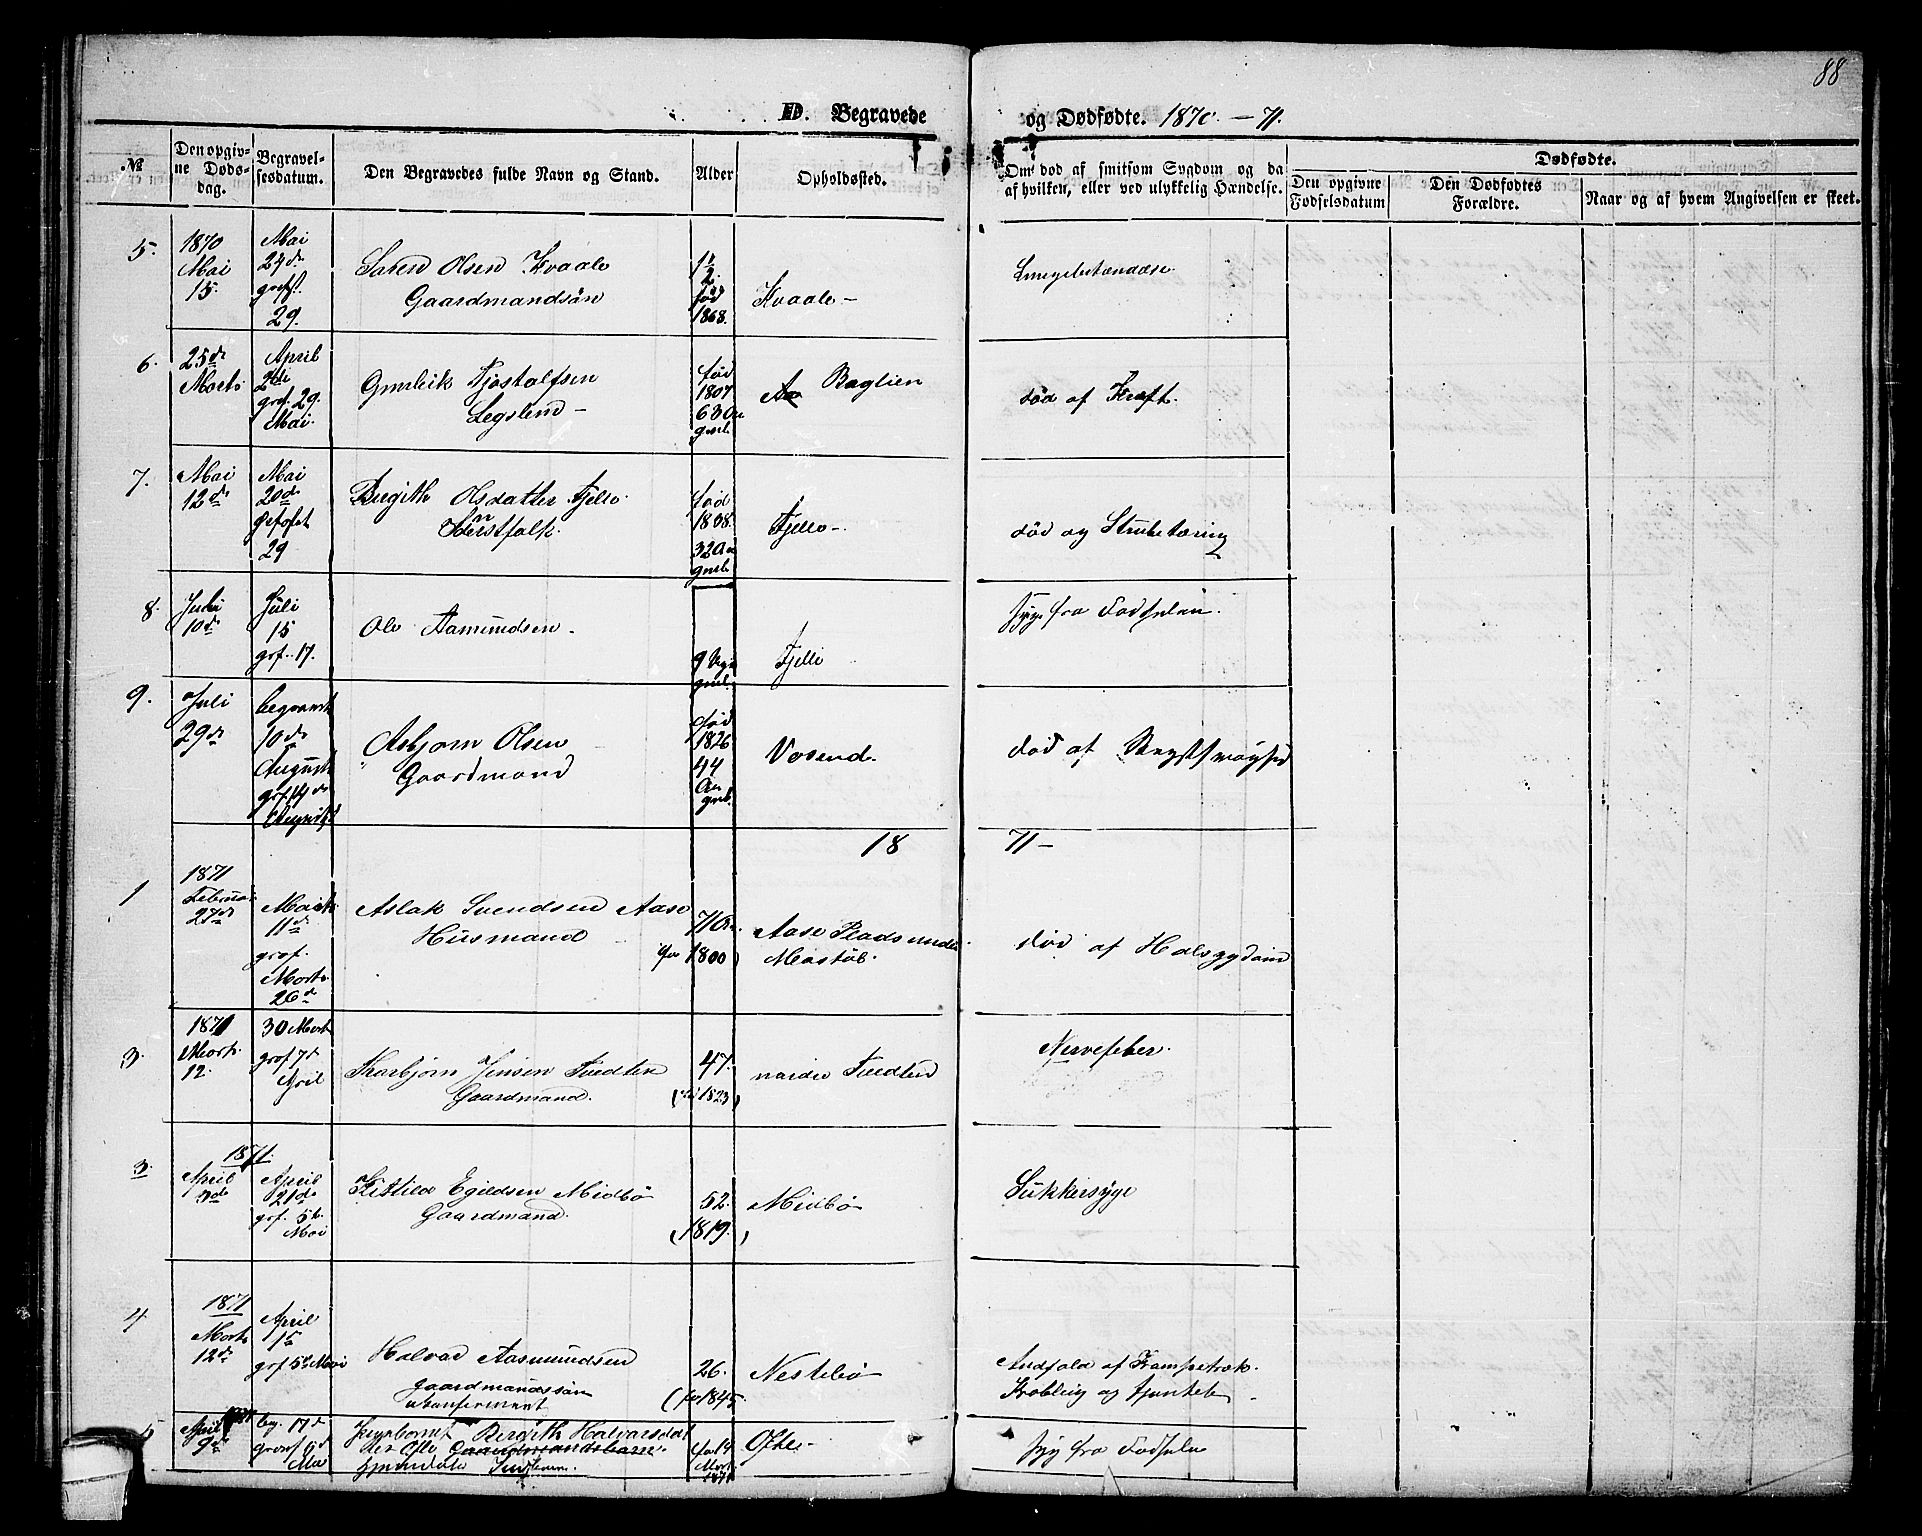 88
D. Begravede og Dødfødte. 1870 - 71.
№
Den opgivne Dødsdag.
Begravelsesdatum.
Den Begravedes fulde Navn og Stand.
Alder
Opholdssted.
Om død af smitsom Sygdom og da
af hvilken, eller ved ulykkelig Hændelse.
Dødfødte.
Den opgivne
Fødselsdatum
Den Dødfødtes
Forældre.
Naar og af hvem Angivelsen er skeet.
5.
1870
Mai
15.
Mai
24de
29.
Olsen Kvaale
Gaardmandsøn
1½
fød
1868.
Kvaale -
6.
25de
Marts
April
2de
grf. 29.
Mai.
Gunleik Tjostolfsen
fød
1807
63 Aar
gml.
Baglien
død af Kræft.
7.
Mai
12de
Mai
20de
29
Birgith Olsdatter Fjelle
fød
1808.
32 Aar
gml.
Fjelle -
død og
8.
Juli
10de
Juli
15
grf. 17.
Ole Aamundsen -
gml.
Fjelle
syg fra Fødselen.
9.
Juli
29de
begravet
10de
August
grf. 14de
August
Asbjørn Olsen
Gaardmand
fød
1826
44
Aar
gml.
Vosend.
død af
18 71 -
1
1871
Februar
27de
Marts
11de
grf.
Marts
26de
Aslak Svendsen Aase
Husmand
71 Aar
1800)
Aase Plads under
død af Halssygdom
3.
1871
Marts
12.
30 Marts
grf 7de
April
Thorbjørn Jensen Tvedten
Gaardmand.
47.
(fød 1823)
nordre Tvedten
Nervefeber.
3.
1871.
April
3de
April
21de
grf. 5te
Mai
Kittild Egildsen Midbø
Gaardmand.
52.
(1819.)
Midbø
Sukkersyge
4
1871
Marts
12de
April
1ste
grf 5te Mai
Halvor Aasmundsen
gaardmandssøn
ukonfermeret
26.
(fød 1845.
Nestebø
Anfald af Krampetræk.
5
1871
April
9de
beg. 17de
Mai
Halvorsdat
ter Ofte Gaardmandsbarn
Marts
1871
Ofte -
syg fra Fødselen